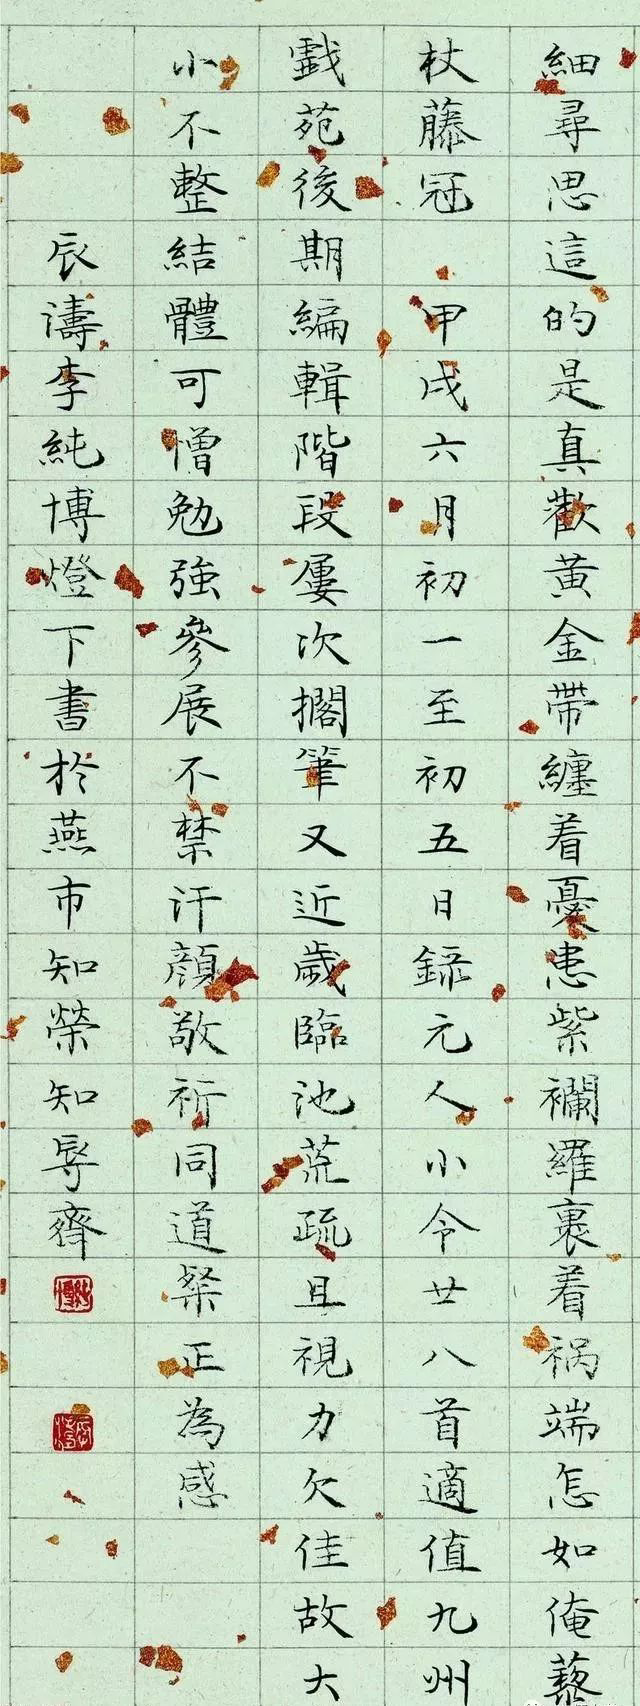 細尋思這的是真歡黃金帶纏着憂患紫襴羅裹着禍端怎如俺藜
杖藤冠 甲戌六月初一至初五日錄元人小令廿八首適值九州
戲苑後期編輯階段屢次擱筆又近歲臨池荒疏且視力欠佳故大
小不整結體可憎勉強參展不禁汗顏敬祈同道粲正為感
辰濤李純博燈下書於燕市知榮知辱齊